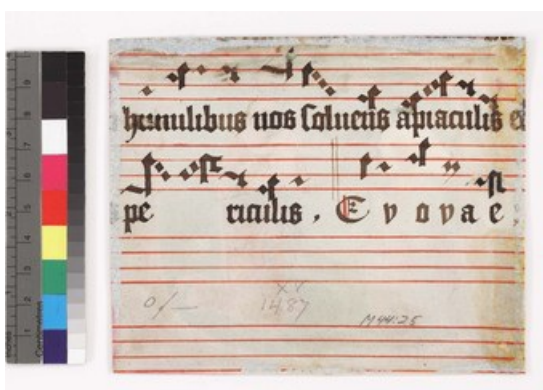 humilibus nos solucus apiaculis et
pe riculis. E v o v a e
XV
1487
0/—
M44:25